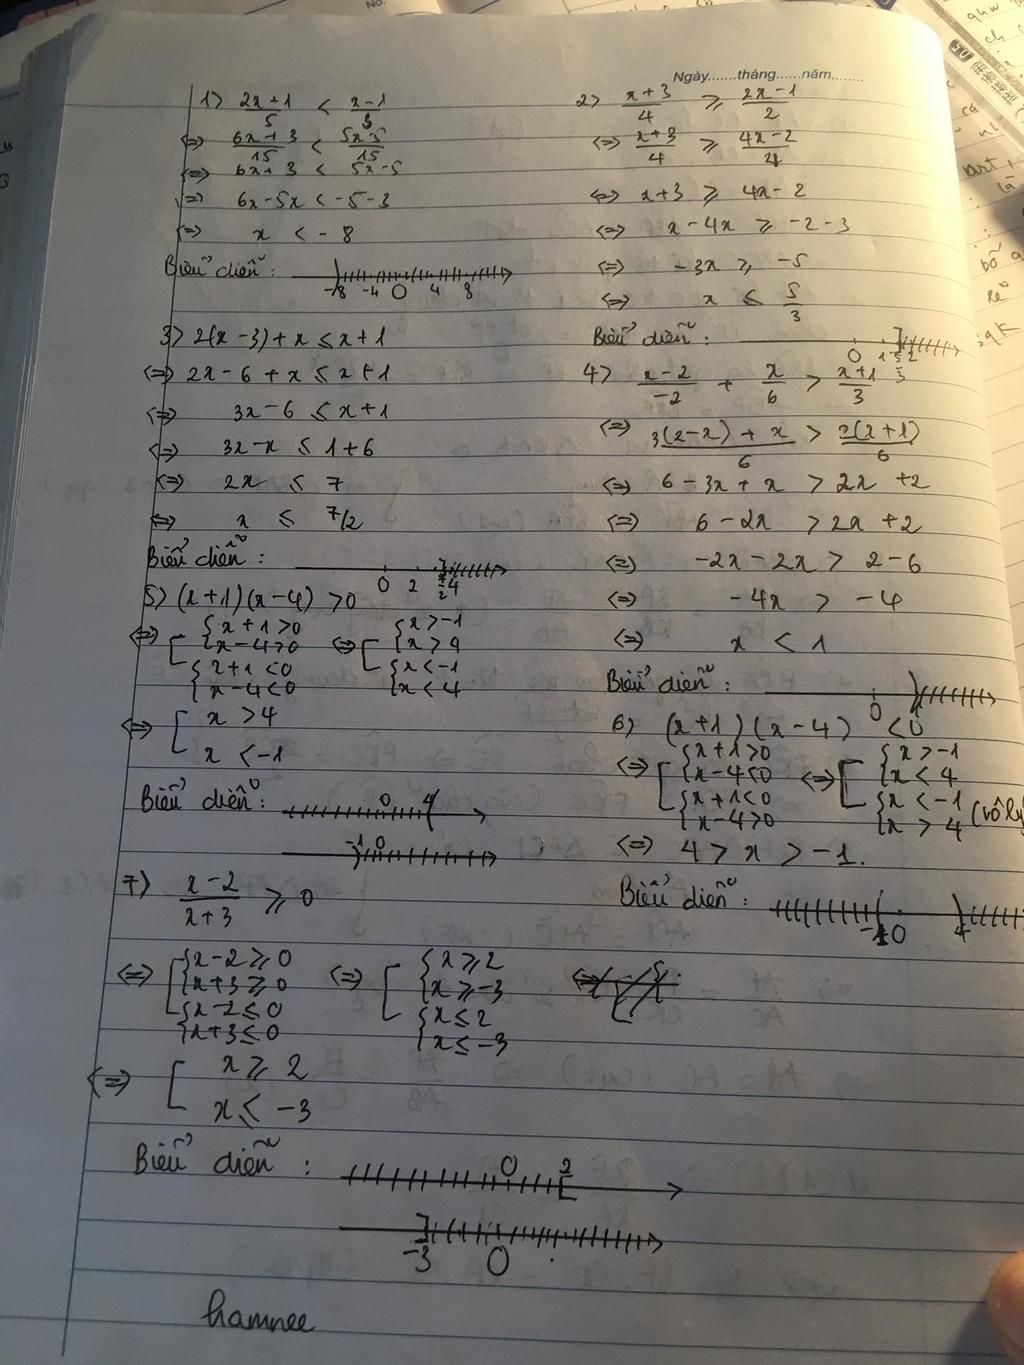 Ngày.......tháng......năm........
1) (2x+1)/5 < (x-1)/3
<=> (6x+3)/15 < (5x-5)/15
<=> 6x+3 < 5x-5
<=> 6x-5x < -5-3
<=> x < -8
Biểu diễn:
-8 -4 0 4 8
2) (x+3)/4 ≥ (2x-1)/2
<=> (x+3)/4 ≥ (4x-2)/4
<=> x+3 ≥ 4x-2
<=> x-4x ≥ -2-3
<=> -3x ≥ -5
<=> x ≤ 5/3
Biểu diễn:
0 1 5/3 2
3) 2(x-3)+x ≤ x+1
<=> 2x-6+x ≤ x+1
<=> 3x-6 ≤ x+1
<=> 3x-x ≤ 1+6
<=> 2x ≤ 7
<=> x ≤ 7/2
Biểu diễn:
0 2 7/2 4
4) (x-2)/-2 + x/6 > (x+1)/3
<=> (3(2-x)+x)/6 > 2(x+1)/6
<=> 6-3x+x > 2x+2
<=> 6-2x > 2x+2
<=> -2x-2x > 2-6
<=> -4x > -4
<=> x < 1
Biểu diễn:
0 1
5) (x+1)(x-4) > 0
<=> [ { x+1>0 <=> [ { x>-1
{ x-4>0 { x>4
{ x+1<0 { x<-1
{ x-4<0 { x<4
<=> [ x>4
x<-1
Biểu diễn:
0 4
-1 0
6) (x+1)(x-4) < 0
<=> [ { x+1>0 <=> [ { x>-1
{ x-4<0 { x<4
{ x+1<0 { x<-1
{ x-4>0 { x>4 (vô lý
<=> 4 > x > -1.
Biểu diễn:
-1 0 4
7) (x-2)/(x+3) ≥ 0
<=> [ { x-2≥0 <=> [ { x≥2
{ x+3≥0 { x≥-3
{ x-2≤0 { x≤2
{ x+3≤0 { x≤-3
<=> [ x≥2
x≤-3
Biểu diễn:
0 2
-3 0
hamnee